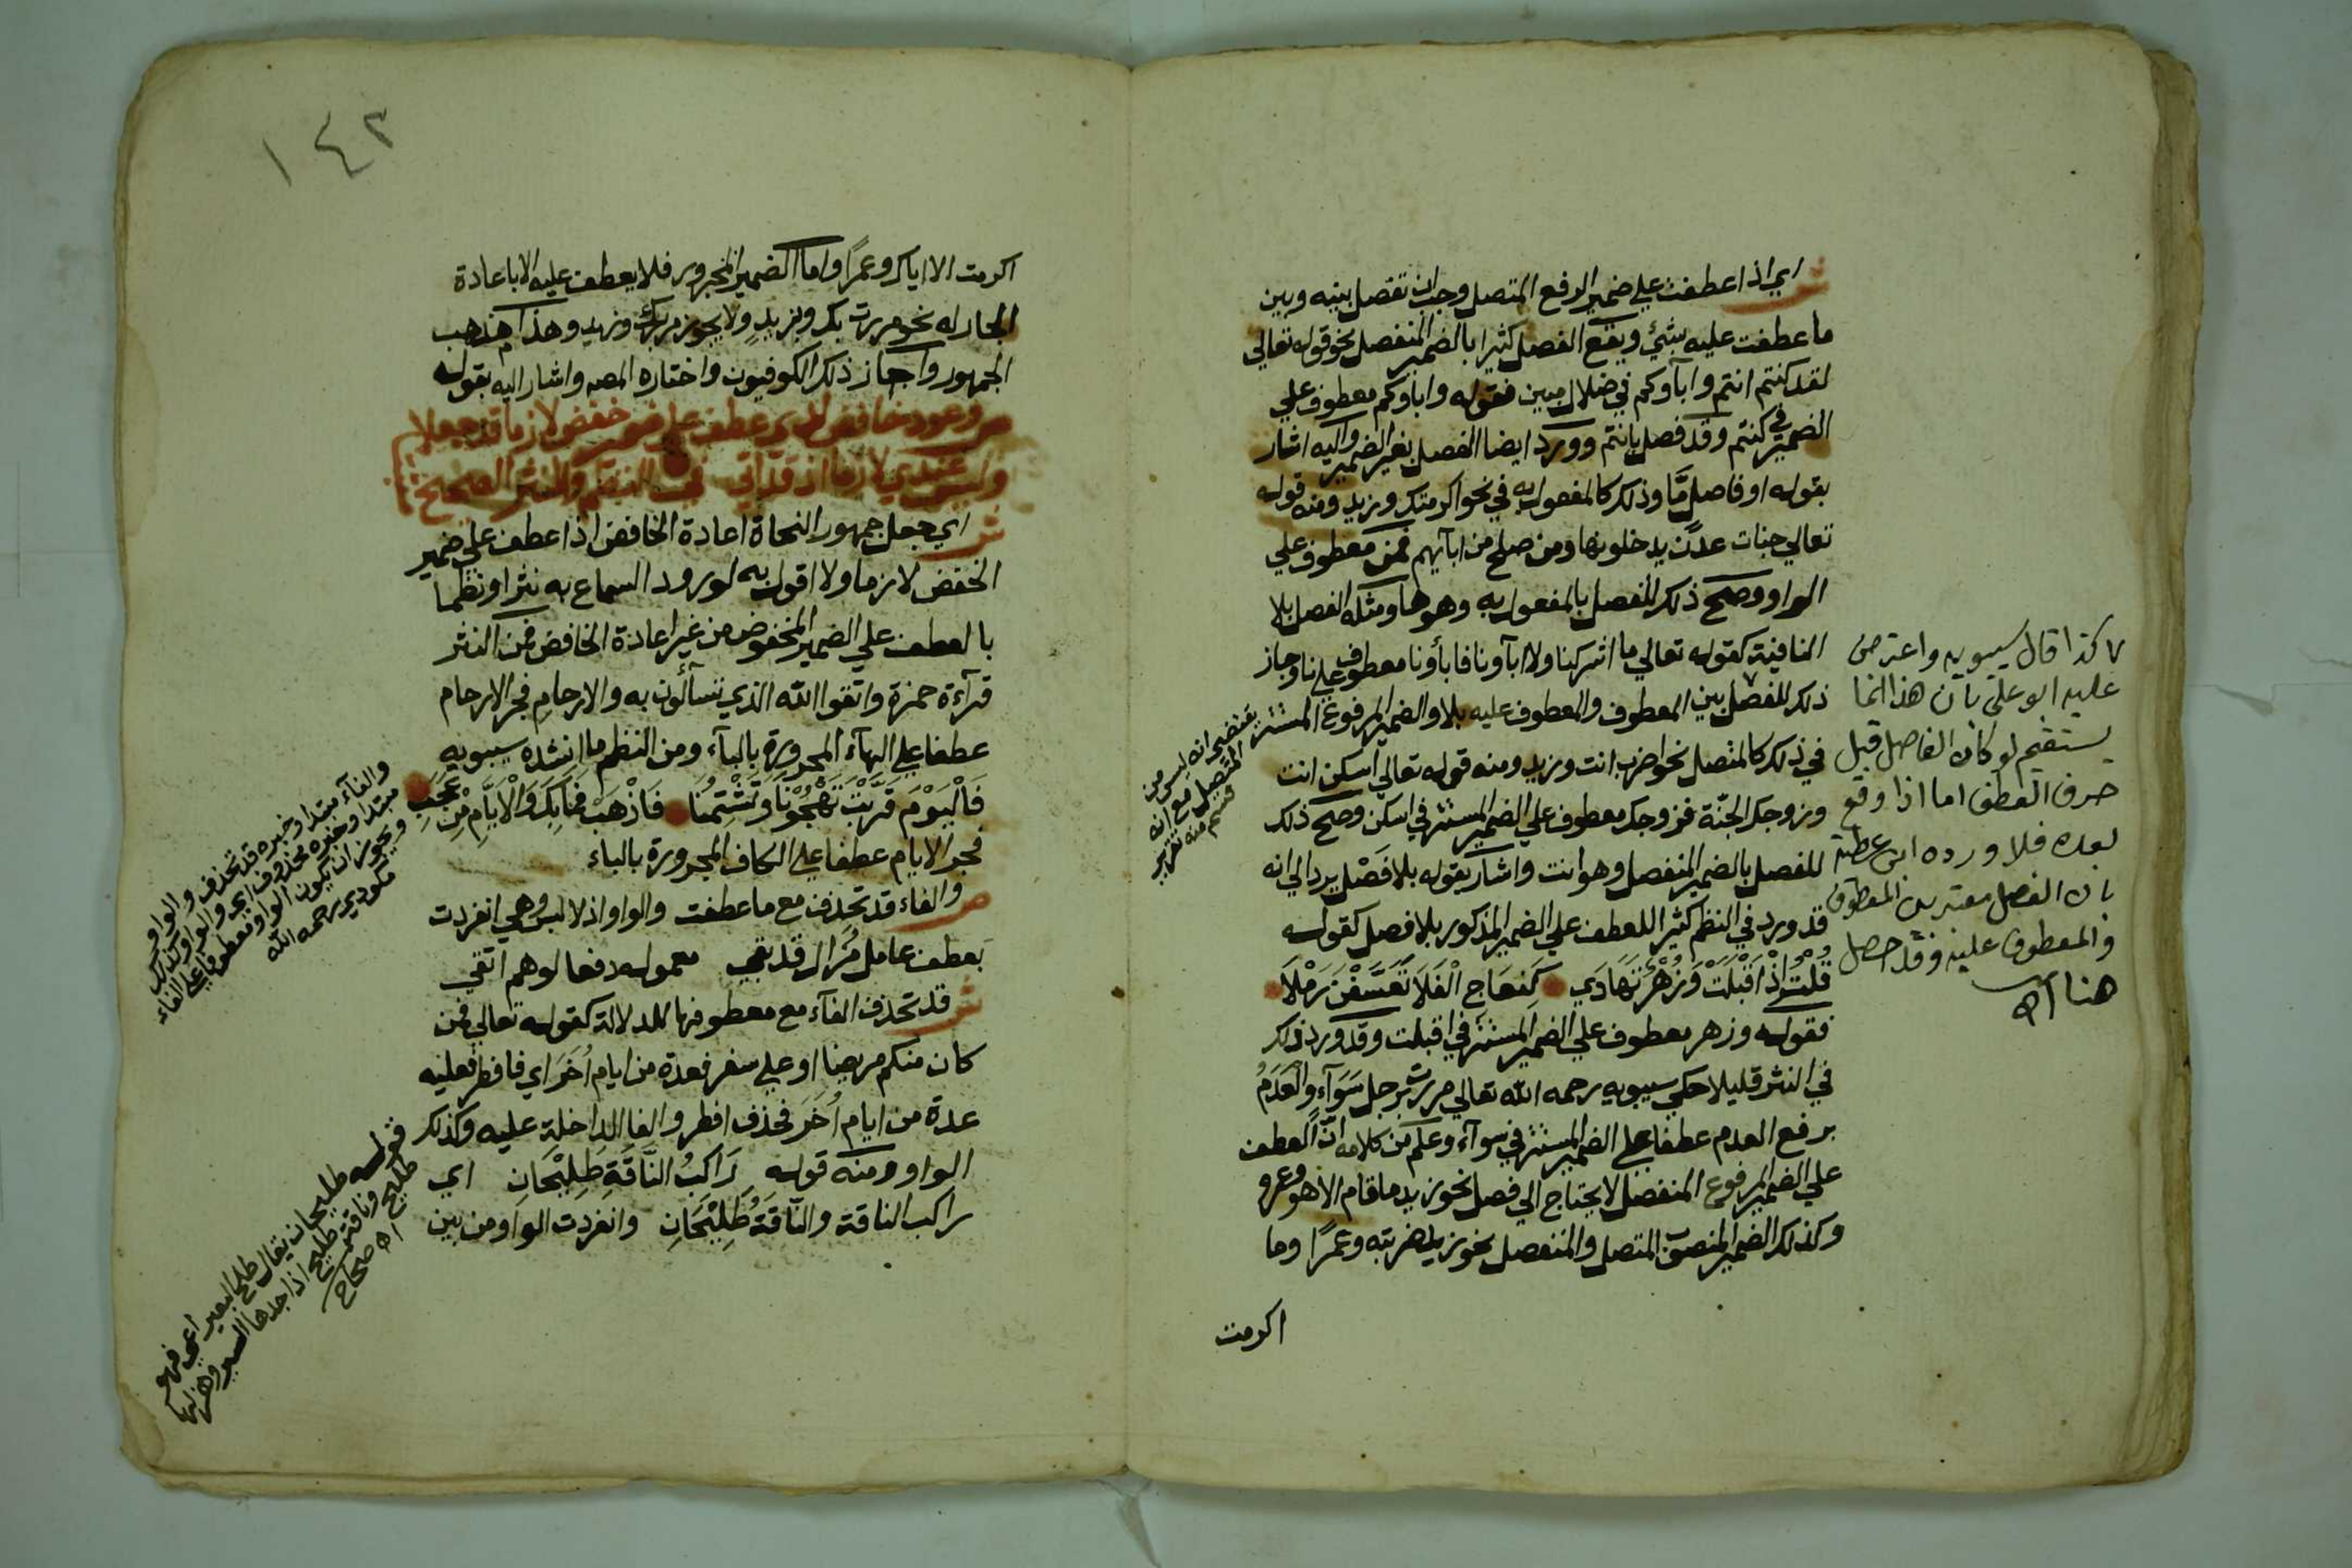 ش اي اذا عطفت علي ضمير الرفع المتصل وجب ان تفصل بينه وبين
ما عطفت عليه بشئ ويقع الفصل كثيرا بالضمير المنفصل نحو قوله تعالي
لقد كنتم انتم وابآوكم في ضلال مبين فقوله واباوكم معطوف علي
الضمير في كنتم وقد فصل بانتم وورد ايضا الفصل بغير الضمير واليه اشار
بقوله او فاصل مّا وذلك كالمفعول به في نحو اكرمتك وزيد ومنه قوله
تعالي جنات عدن يدخلونها ومن صلح من ابآيهم فمن معطوف علي
الواو وصح ذلك للفصل بالمفعول به وهو ها ومثله الفصل بلا
النافية كقوله تعالي ما اشركنا ولا ابآونا فابأونا معطوف علي نا وجاز
ذلك للفصل بين المعطوف والمعطوف عليه بلا والضمير المرفوع المستتر
في ذلك كالمتصل نحو اضرب انت وزيد ومنه قوله تعالي اسكن انت
وزوجك الجنّة فزوجك معطوف علي الضمير المستتر في اسكن وصح ذلك
للفصل بالضمير المنفصل وهو انت واشار بقوله بلا فصْل يرد الي انه
قد ورد في النظم كثيرا للعطف علي الضمير المذكور بلا فصل كقوله
قُلْتُ اِذْ اَقْبَلَتْ وَزُهْرٌ تَهَادَي كَنِعَاجِ الْفَلَا تَعَسَّفْنَ رَمْلَا
فقوله وزهر معطوف علي الضمير المستتر في اقبلت وقد ورد ذلك
في النثر قليلا حكي سيبويه رحمه الله تعالي مررت برجل سَوَآءٍ والْعَدَمُ
برفع العدم عطفا علي الضمير المستتر في سوآء وعلم من كلامه انّ العطف
علي الضمير المرفوع المنفصل لا يحتاج الي فصل نحو زيد ما قام الا هو وعمرو
وكذلك الضمير المنصوب المتصل والمنفصل نحو زيد ضربته وعمرًا وما
اكرمت
كذا قال سيبويه واعترض
عليه ابو علي بان هذا انما
يستقيم لو كان الفاصل قبل
حرف العطف اما اذا وقع
بعده فلا ورده ابن عطية
بان الفصل معتبر بين المعطوف
والمعطوف عليه وقد حصل
هنا اه
يقتضي انه ليس من
المتصل مع انه
قسم منه تقرير
١٤٢
اكرمت الا اياك وعمرًا واما الضمير المجرور فلا يعطف عليه الا باعادة
الجار له نحو مررت بك وبزيدٍ ولا يجوز مررت بك وزيد وهذا مذهب
الجمهور واجاز ذلك الكوفيون واختاره المصه واشار اليه بقوله
ص وعود خافض لدي عطف علي ضمير خفض لازما قد جعلا
وليس عندي لازما اذ قد اتي في النظم والنثر الصحيح
ش اي جعل جمهور النحاة اعادة الخافض اذا عطف علي ضمير
الخفض لازما ولا اقول به لورود السماع به نثرا ونظما
بالعطف علي الضمير المخفوض من غير اعادة الخافض فمن النثر
قرآءة حمزة واتقوا الله الذي تسآألون به والارحامِ فجر الارحام
عطفا علي الهآء المجرورة بالبآء ومن النظم ما انشده سيبويه
فَالْيَوْمَ قَرَّبْتَ تَهْجُوْنَا وَتَشْتِمُنَا فَاذْهَبْ فَمَا بِكَ وَالْاَيَّامِ مِنْ عَجَبِ
فجر الايام عطفا علي الكاف المجرورة بالباء
ص والفاء قد تحذف مع ما عطفت والواو اذ لا لبس وهي انفردت
بعطف عامل مُزال قد بقي معموله دفعا لوهم اتقي
ش قد تحذف الفآء مع معطوفها للدلالة كقوله تعالي فمن
كان منكم مريضا او علي سفر فعدة من ايام اُخَرَ اي فافطر فعليه
عدة من ايام اُخَرَ فحذف افطر والفا الداخلة عليه وكذلك
الواو ومنه قوله رَاكبُ النَّاقَةِ طَلِيْحَانِ اي
راكب الناقة والنَّاقَةُ طَلِيْحَانِ وانفردت الواو من بين
والفآء مبتدا وخبره قد تحذف والواو
مبتدا وخبره محذوف اي والواو كذلك
ويجوز ان يكون الواو معطوفا علي الفاء
مكودي رحمه الله
قوله طليحان يقال طلح البعير اعي فهو
طليح وناقة طليح اذا جهدها السير وهزلها
اه صحاح